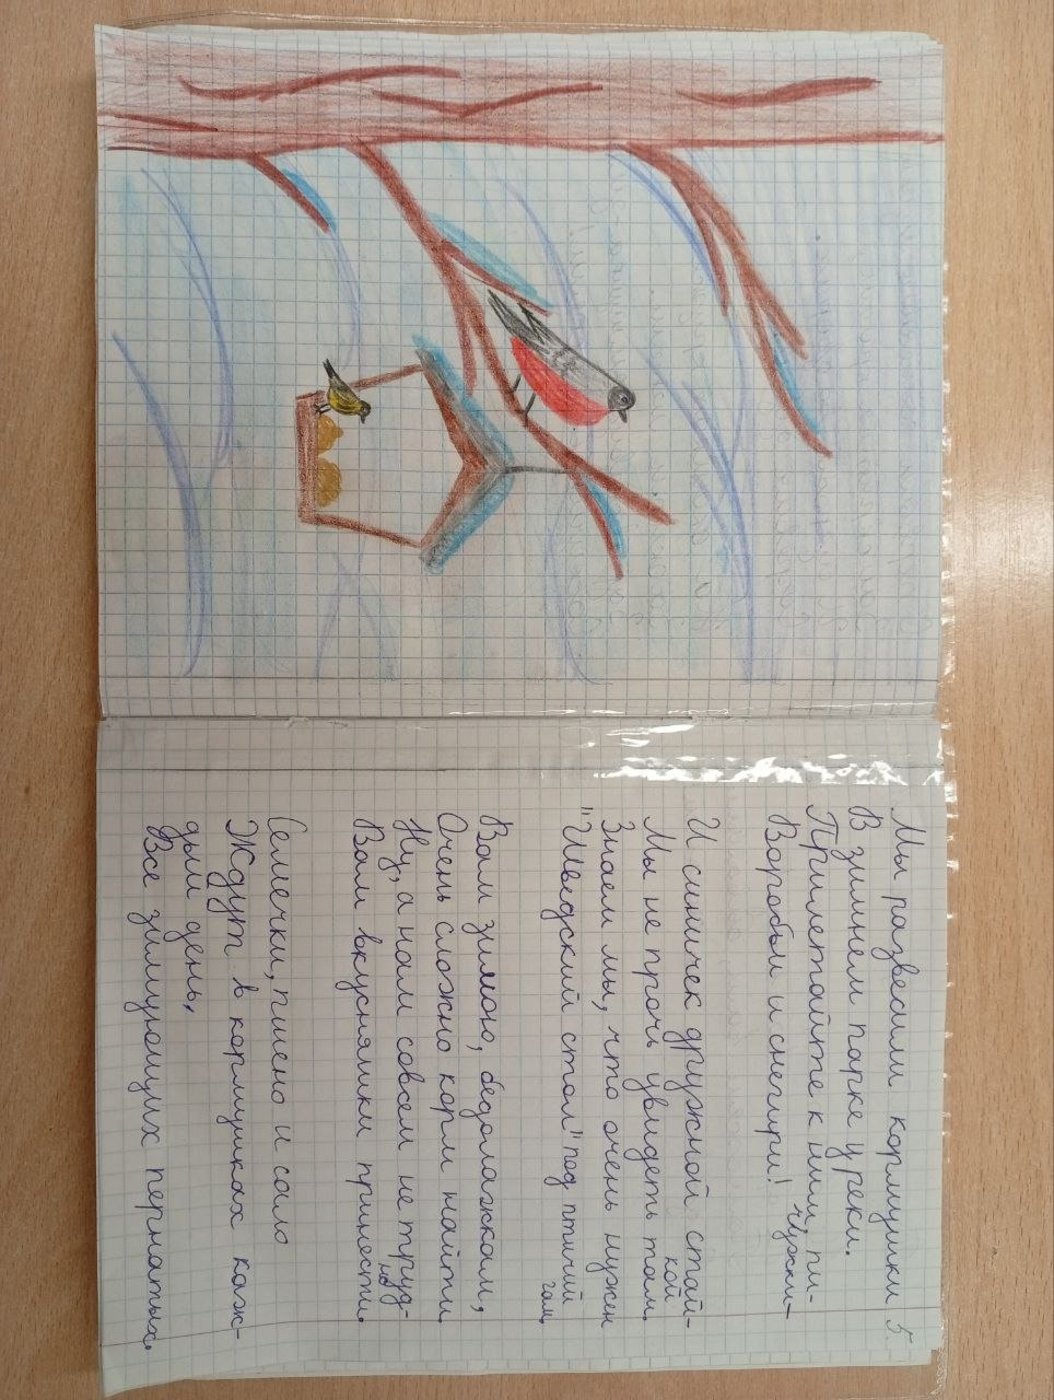 5
Мы развесили кормушки
В зимнем парке у реки.
Прилетайте к ним, пи-
чужки-
Воробьи и снегири!
И синичек дружной стай-
кой
Мы не прочь увидеть там.
Знаем мы, что очень нужен
"Шведский стол" под птичий
гам.
Вам зимою, бедолажкам,
Очень сложно корм найти.
Ну, а нам совсем не труд-
но
Вам вкусняшки принести.
Семечки, пшено и сало
Ждут в кормушках каж-
дый день,
Все зимующих пернатых.